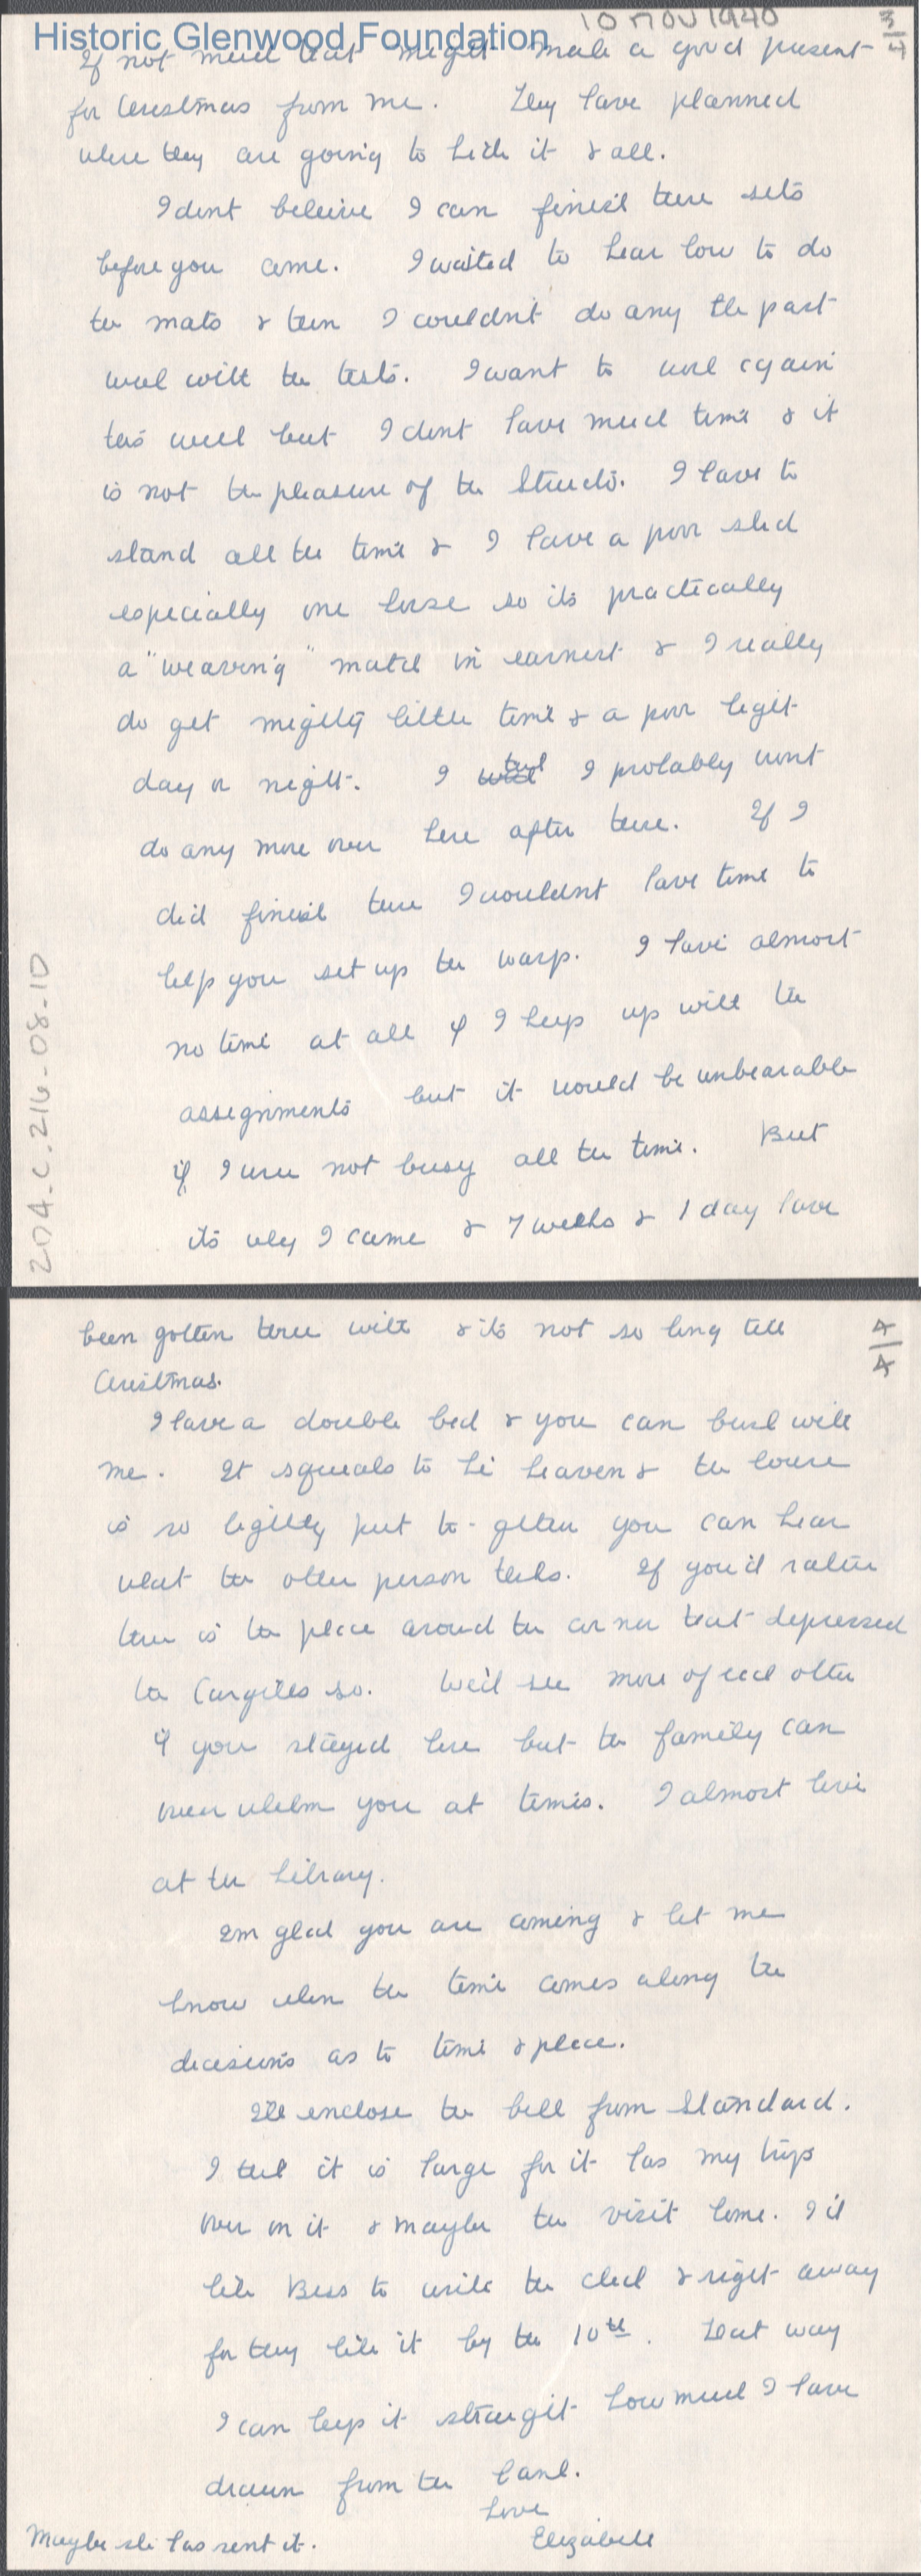 10 NOV 1940
3/4
Historic Glenwood Foundation
If not much that might make a good present
for Christmas from me. They have planned
where they are going to hide it & all.
I dont beleive I can finish these sets
before you come. I waited to hear how to do
the mats & then I couldnt do any the past
week with the tests. I want to work again
this week but I dont have much time & it
is not the pleasure of the Struclo. I have to
stand all the time & I have a poor shed
especially one loose so its practically
a "wearing" match in earnest & I really
do get mighty little time & a poor light
day or night. I I probably wont
do any more over here after these. If I
did finish these I wouldnt have time to
help you set up the warp. I have almost
no time at all if I keep up with the
assignments but it would be unbearable
if I were not busy all the time. But
its why I came & 7 weeks & 1 day have
204.C.216-08-10
4/4
been gotten thru with & its not so long till
Christmas.
I have a double bed & you can bunk with
me. It squeals to hi heaven & the house
is so lightly put to-gether you can hear
what the other person thinks. If you'd rather
there is the place around the corner that depressed
the Cargiles so. We'd see more of each other
if you stayed here but the family can
over whelm you at times. I almost live
at the library.
Im glad you are coming & let me
know when the time comes along the
decisions as to time & place.
Ill enclose the bill from Standard.
I think it is large for it has my trips
over on it & maybe the visit home. I'd
like Bess to write the check & right away
for they like it by the 10th. That way
I can keep it straight how much I have
drawn from the bank.
Love
Elizabeth
Maybe she has sent it.